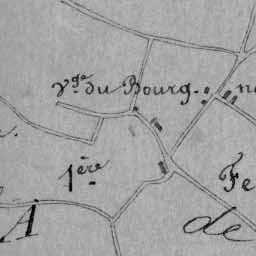 V.ge du Bourg.
1ère
Fe
A
de